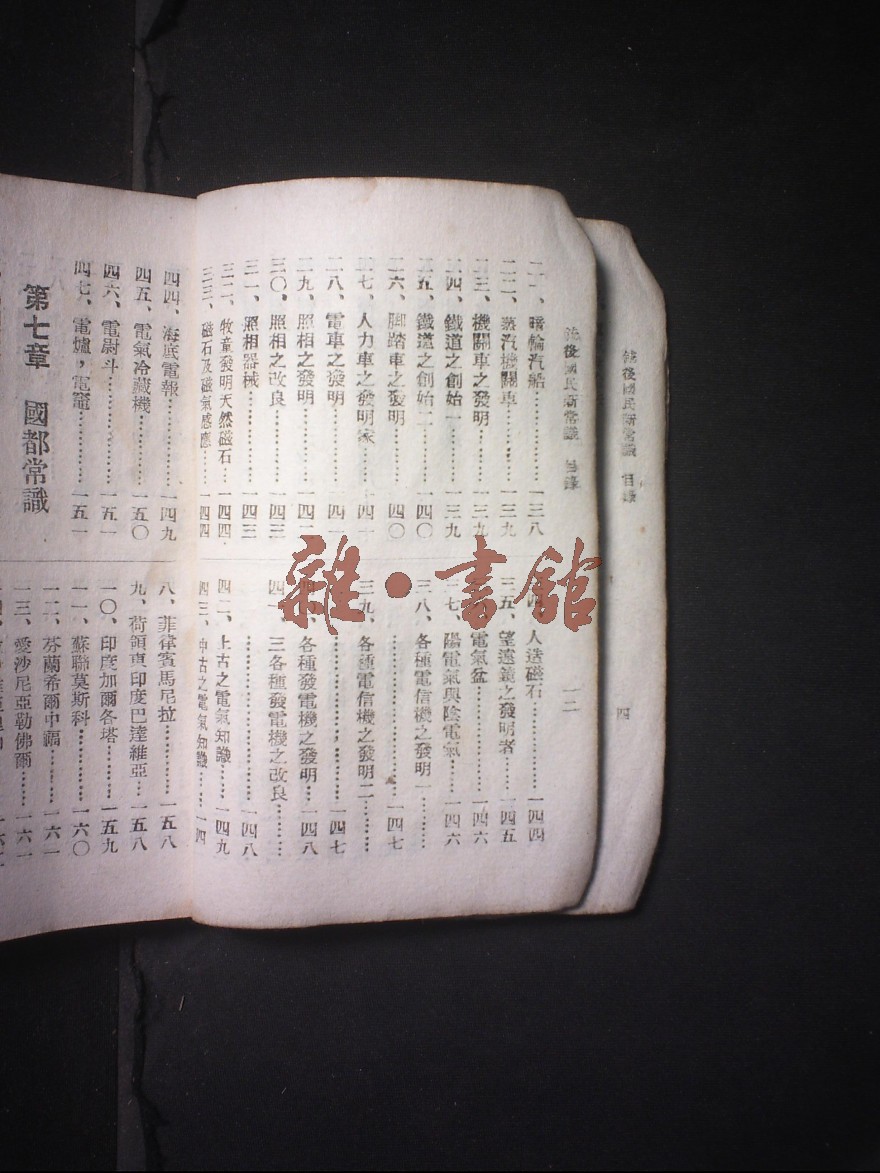 後國民新常識 目錄
四
後國民新常識 目錄
一二
二一、暗輪汽船………一三八
二二、蒸汽機關車………一三九
二三、機關車之發明………一三九
二四、鐵道之創始一………一三九
二五、鐵道之創始二………一四〇
二六、脚踏車之發明………一四〇
二七、人力車之發明家………一四一
二八、電車之發明………一四一
二九、照相之發明………一四二
三〇、照相之改良………一四三
三一、照相器械………一四三
三二、牧童發明天然磁石…一四四
三三、磁石及磁氣感應……一四四
人造磁石………一四四
三五、望遠鏡之發明者……一四五
電氣盆………一四六
三七、陽電氣與陰電氣……一四六
三八、各種電信機之發明一………
………一四七
三九、各種電信機之發明二………
………一四七
各種發電機之發明…一四八
四一、三各種發電機之改良………
………一四八
四二、上古之電氣知識……一四九
四三、中古之電氣知識……一四
四四、海底電報………一四九
四五、電氣冷藏機………一五〇
四六、電尉斗………一五一
四七、電爐，電竈………一五一
第七章 國都常識
八、菲律賓馬尼拉………一五八
九、荷領東印度巴達維亞…一五八
一〇、印度加爾各塔………一五九
一一、蘇聯莫斯科………一六〇
一二、芬蘭希爾中福………一六一
一三、愛沙尼亞勒佛爾……一六一
雜·書館